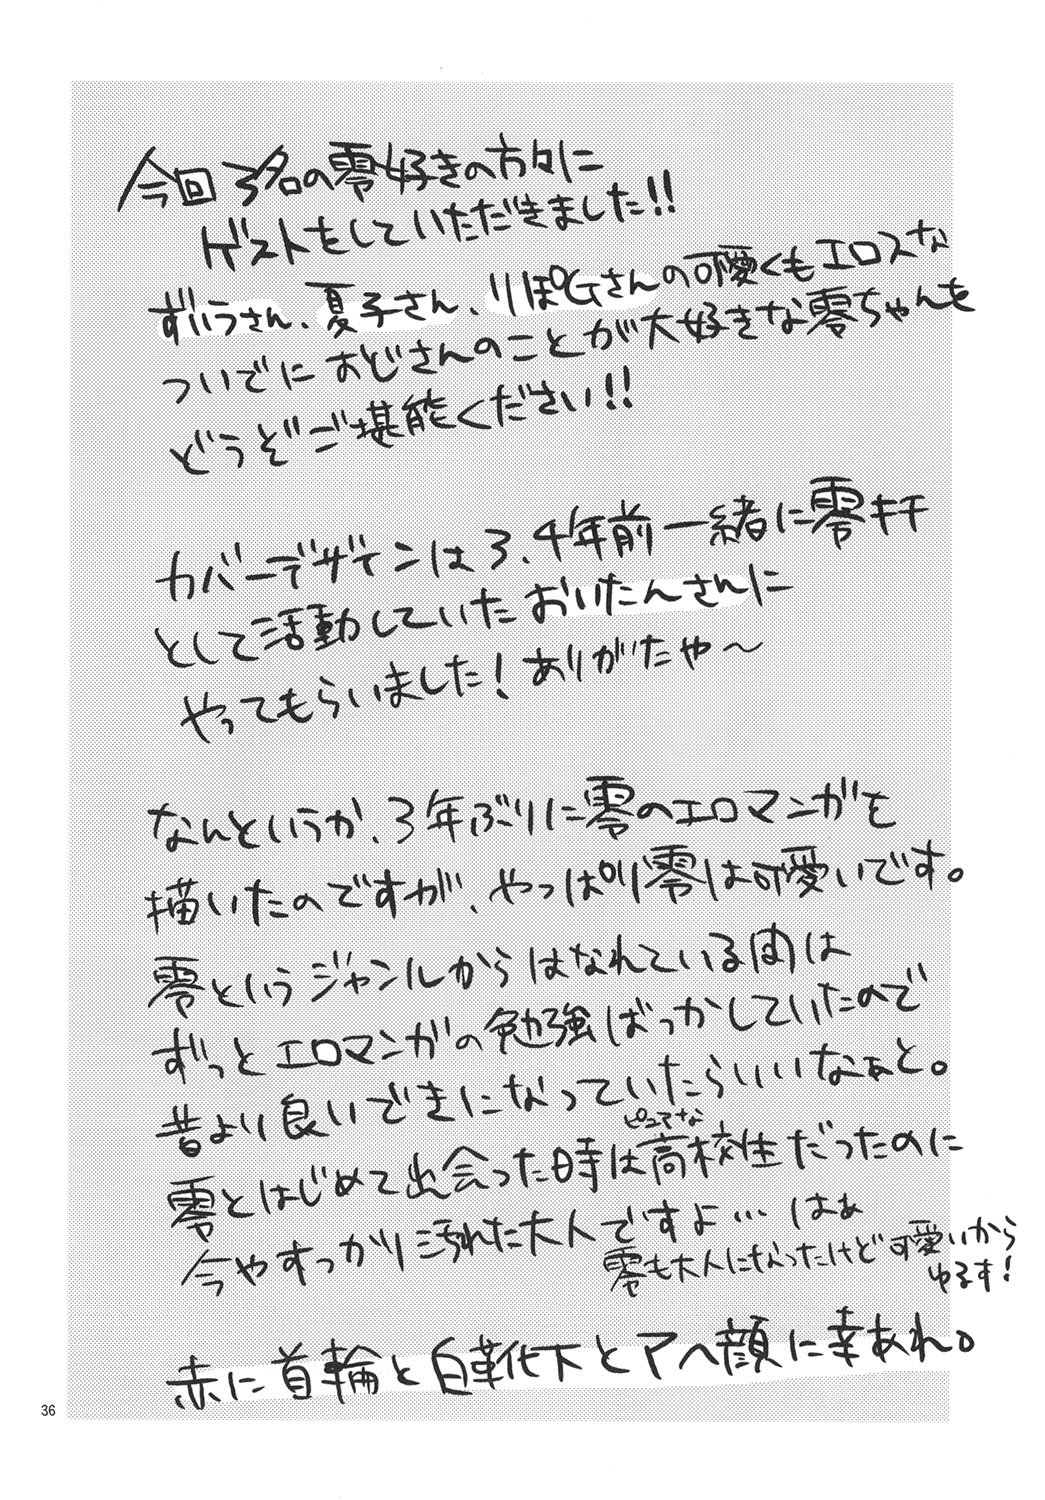 今回3名の零好きの方々に
ゲストをしていただきました!!
ずいうさん、夏子さん、りぽGさんの可愛くもエロスな
ついでにおじさんのことが大好きな零ちゃんを
どうぞご堪能ください!!
カバーデザインは3、4年前一緒に零キチ
として活動していたおいたんさんに
やってもらいました！ありがたや〜
なんというか、3年ぶりに零のエロマンガを
描いたのですが、やっぱり零は可愛いです。
零というジャンルからはなれている間は
ずっとエロマンガの勉強ばっかしていたので
昔より良いできになっていたらいいなぁと。
ピュアな
零とはじめて出会った時は高校生だったのに
今やすっかり汚れた大人ですよ…はぁ
零も大人になったけど可愛いから
ゆるす！
赤に首輪と白靴下とアヘ顔に幸あれ。
36